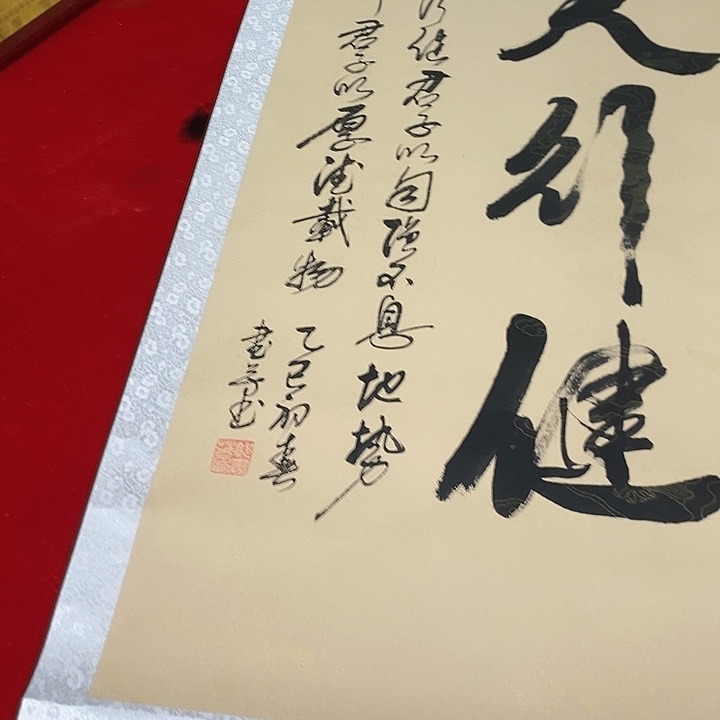 天行健
行健君子以自强不息地势
君子以厚德載物
乙巳初春